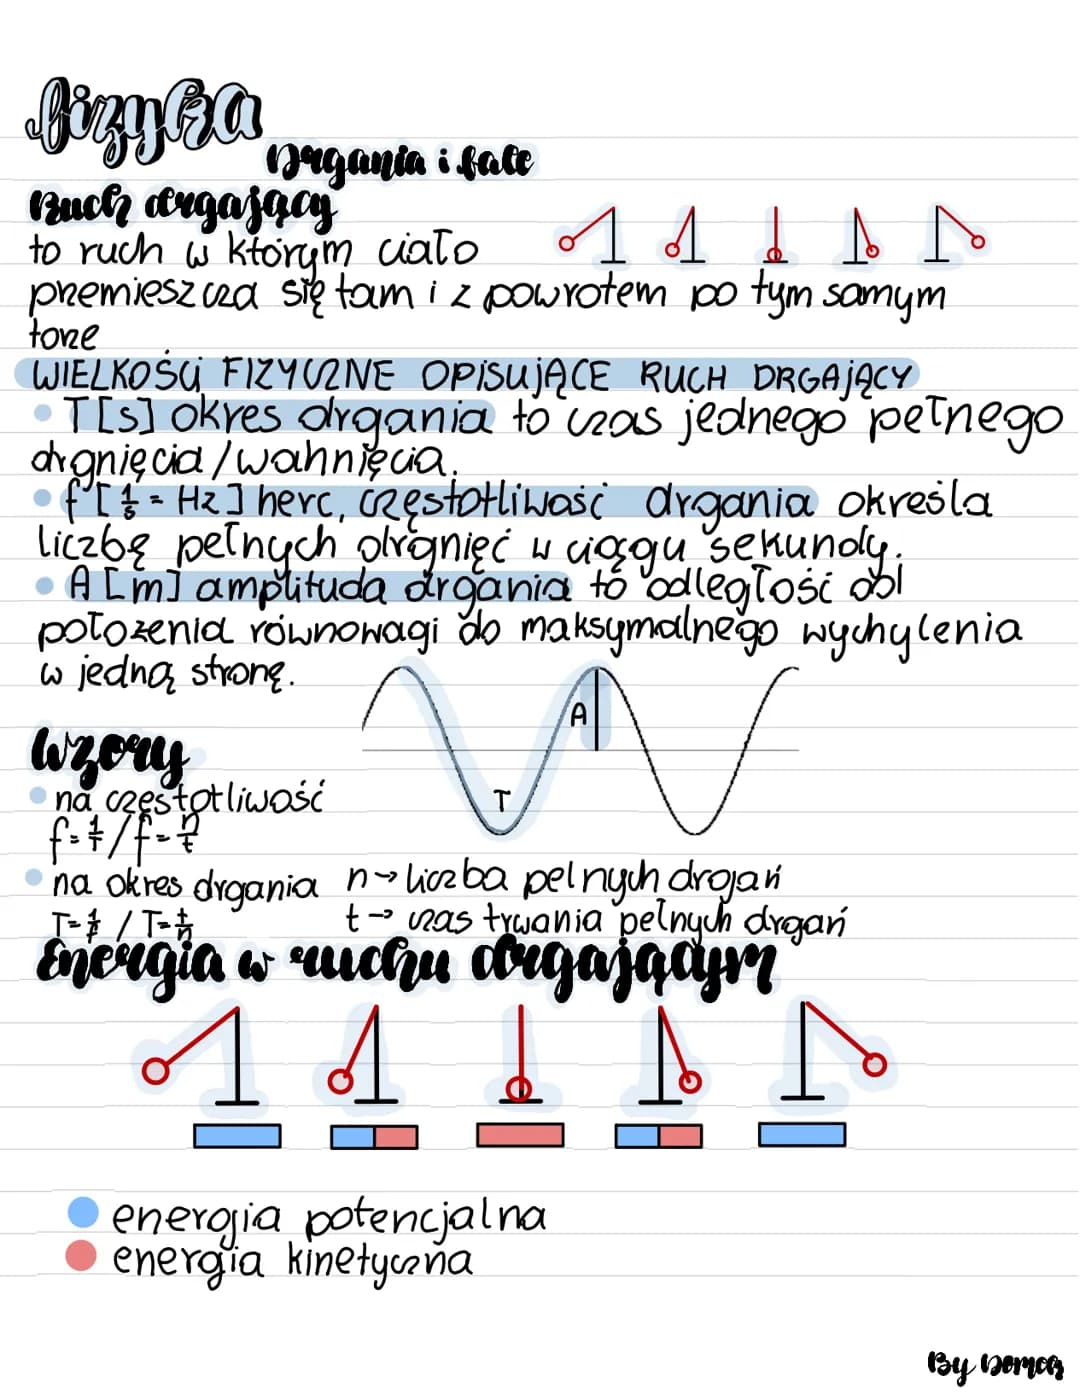 fizyka
Drgania i fale
Ruch drgający
to ruch w którym ciało
przemieszcza się tam i z powrotem po tym samym
torze
WIELKOŚCI FIZYCZNE OPISUJĄCE RUCH DRGAJĄCY
• T[s] okres drgania to czas jednego pełnego
drgnięcia/wahnięcia.
• f[1/s = Hz] herc, częstotliwość drgania określa
liczbę pełnych drgnięć w ciągu sekundy.
• A[m] amplituda drgania to odległość od
położenia równowagi do maksymalnego wychylenia
w jedną stronę.
A
T
Wzory
• na częstotliwość
f=1/T / f=n/t
• na okres drgania
T=1/f / T=t/n
n→liczba pelnych drgań
t→ czas trwania pełnych drgań
Energia w ruchu drgającym
energia potencjalna
energia kinetyczna
By